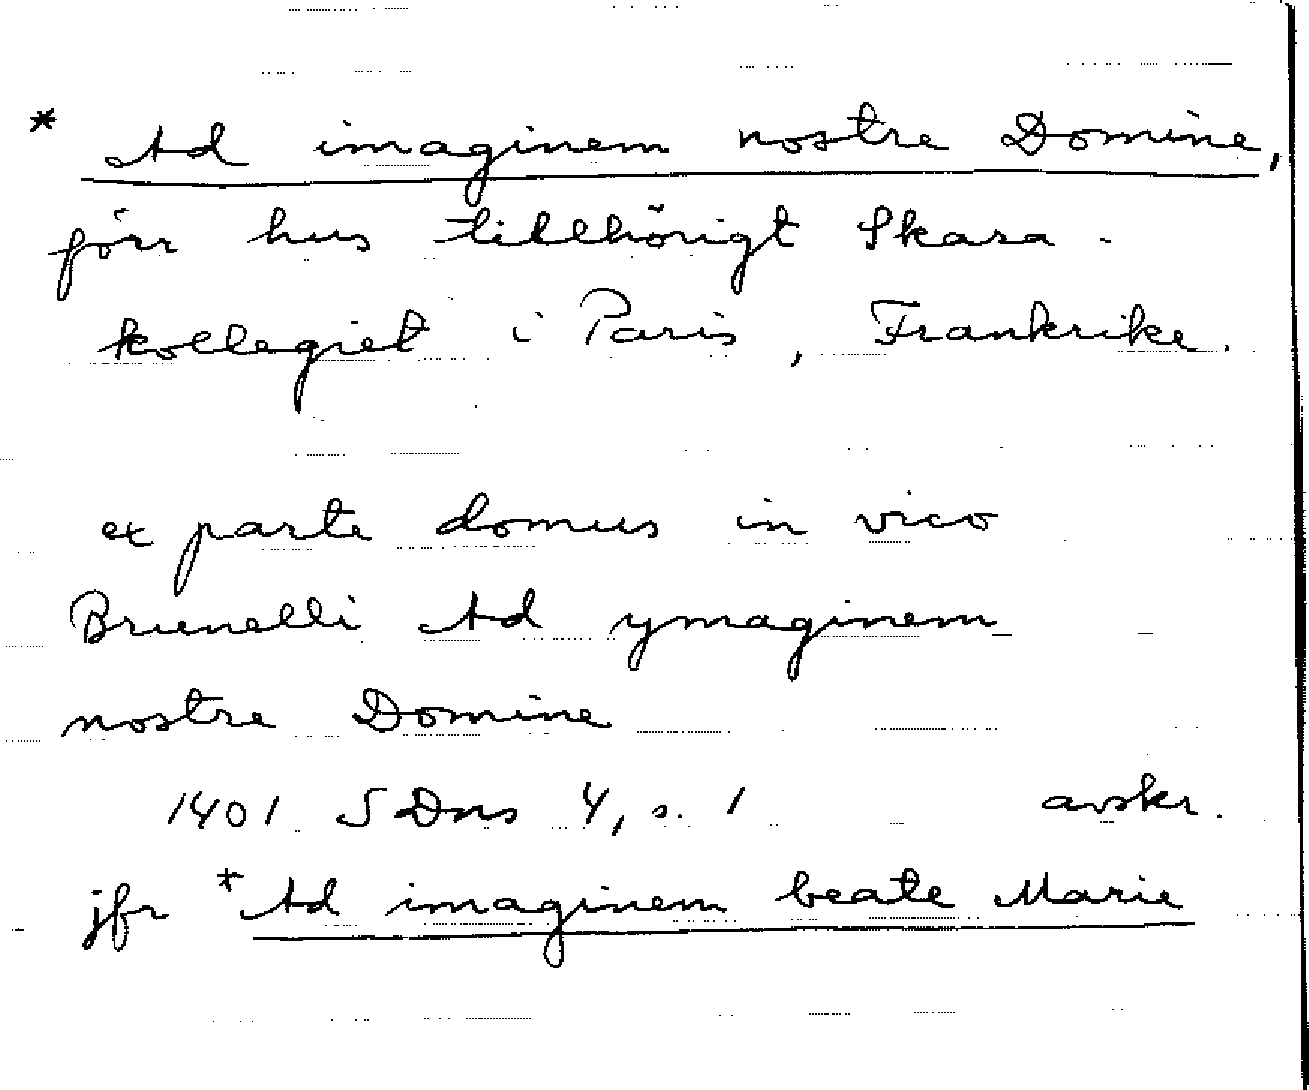 * Ad imaginem nostre Domine,
förr hus tillhörigt Skara-
kollegiet i Paris, Frankrike.
ex parte domus in vico
Brunelli Ad ymaginem
nostre Domine
1401 SDns 4, s. 1 avskr.
jfr *Ad imaginem beate Marie